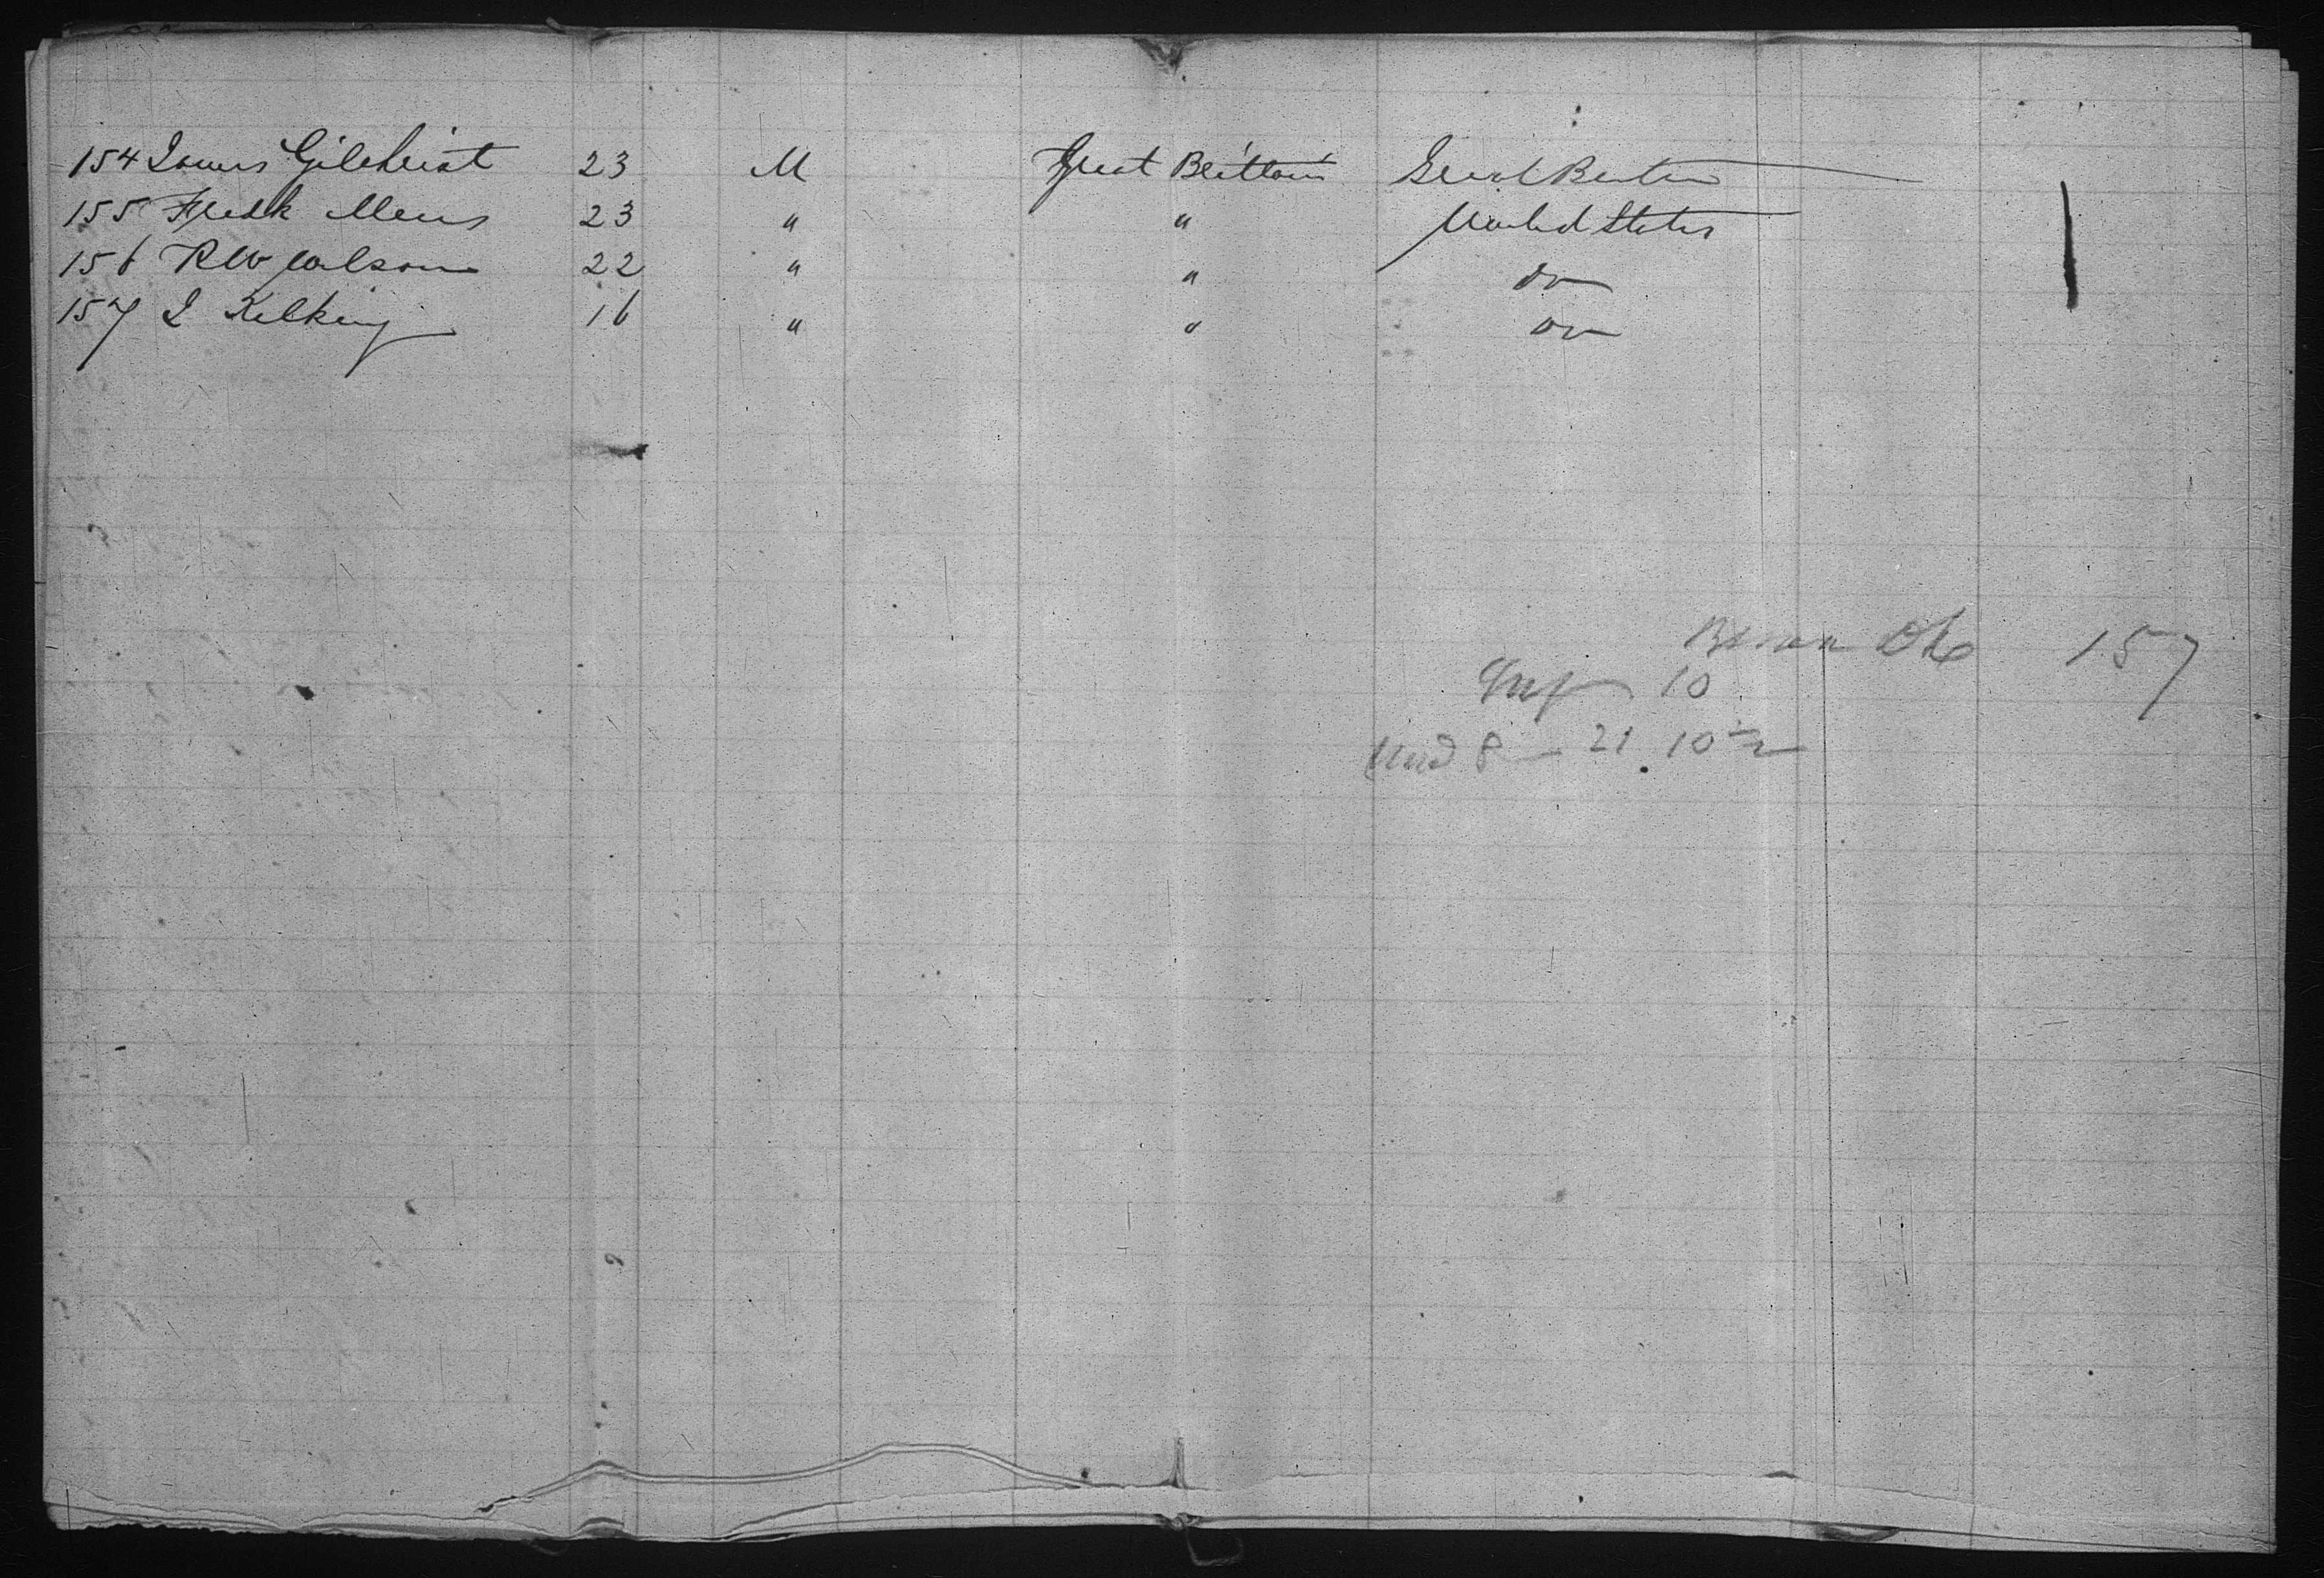 154 James Gilchrist 23 M Great Brittain Great Britain
155 Fredk Mens 23 " " United States
156 RW Wilson 22 " " do
157 J Kelking 16 " " do
157
Inf 10
Und 8 - 21 10